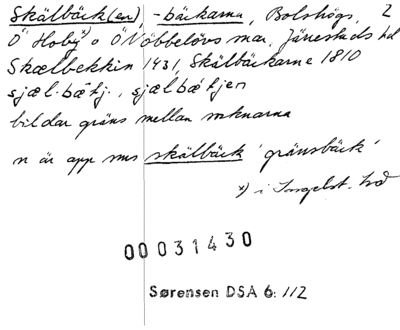 Skälbäck(en), -bäckarna, Bolshögs, 2
Ö Hoby o Ö Nöbbelövs snar, Järrestads hd
Skælbekkin 1431, Skälbäckarne 1810
sjæl·bæ̂tj., sjælbǽtjen
bildar gräns mellan socknarna
n är app sms skälbäck 'gränsbäck'
x) i Ingelst. hd
00031430
Sørensen DSA 6: 112